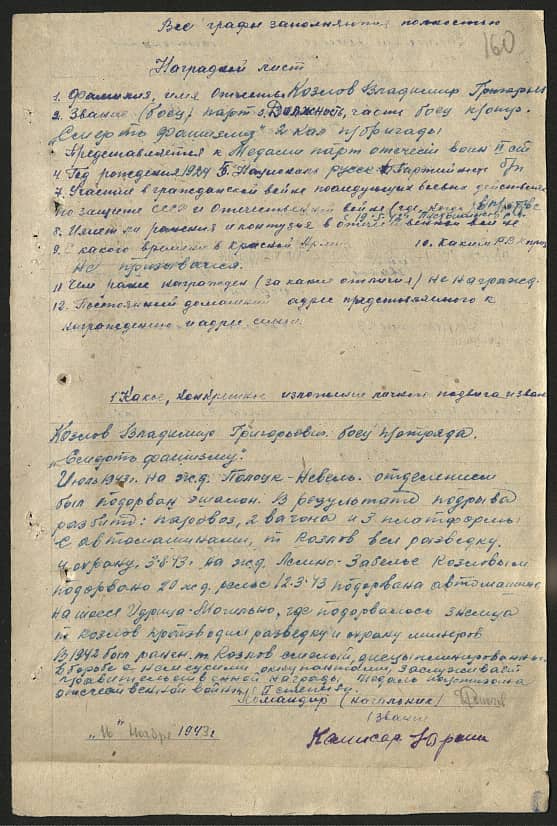 Все графы заполняются полностью
160
Наградной лист
1. Фамилия, имя Отчество Козлов Владимир Григорьев
2. Звание (боец) парт 3. Должность, часть боец п/отр.
"Смерть фашизму" 2-кая п/бригады
Представляется к Медали парт отечеств войн II ст
4. Год рождения 1924 5. Национ русск партийность б/п
7. Участие в гражданской войне последующих боевых действиях
по защите СССР и отечественной войне (где, когда)
8. Имеет ли ранения и контузия в отечественной войне
9. С какого времени в Красной Армии 10. Каким РВК приз
Не призывался.
11 Чем ранее награжден (за какие отличия) не награжд.
12. Постоянный домашний адрес представляемого к
награждению и адрес семьи
1 Какое, конкретное изложение личного подвига и
Козлов Владимир Григорьевич боец п/отряда
"Смерть фашизму".
Июль 1943г. на ж.д. Полоцк-Невель. отделением
был подорван эшалон. В результате подрыва
разбито: паровоз, 2 вагона и 3 платформы
с автомашинами, т Козлов вел разведку.
и охрану. 3-8-43г. на ж.д. Забелье Козловым
подорвано 20 ж.д. рельс 12.3.43 подорвана автомашина
на шоссе Идрица-Могильно, где подорвалось
т Козлов производил разведку и охрану минеров
В 1942 был ранен. т. Козлов смелый, дисциплинированный.
В борьбе с немецкими оккупантами, заслуживает
правительственной награды медаль партизана
отечественной войны II степени.
Командир (начальник)
(звание
"16" Ноября 1943г.
Комисар